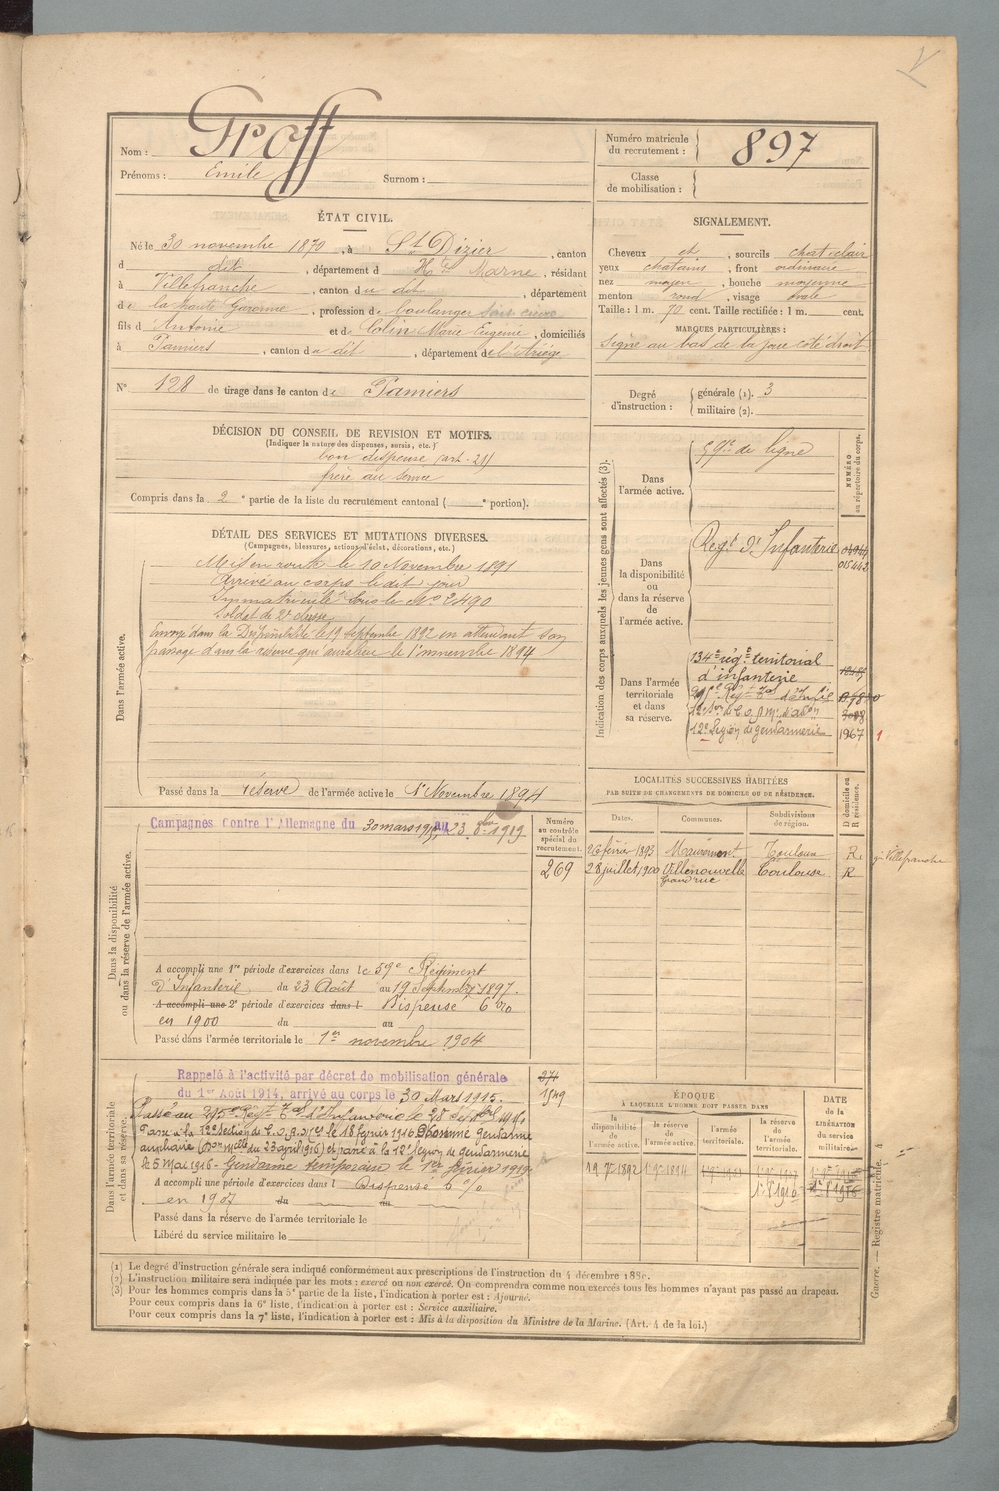 Nom : Groff
Prénoms : Emile Surnom :
Numéro matricule du recrutement : 897
Classe de mobilisation :
ÉTAT CIVIL.
Né le 30 novembre 1870, à St Dizier, canton
d dit, département d Hte Marne, résidant
à Villefranche, canton du dit, département
de la haute Garonne, profession de boulanger
fils d Antoine et de Colin Marie Eugénie, domiciliés
à Pamiers, canton du dit, département de l'Ariège
N° 128 de tirage dans le canton de Pamiers
SIGNALEMENT.
Cheveux et, sourcils chat. clair
yeux chatains, front ordinaire
nez moyen, bouche moyenne
menton rond, visage ovale
Taille : 1 m. 70 cent. Taille rectifiée : 1 m. cent.
MARQUES PARTICULIÈRES :
Signe au bas de la joue coté droit
Degré d'instruction : générale (1). 3
militaire (2).
DÉCISION DU CONSEIL DE REVISION ET MOTIFS.
(Indiquer la nature des dispenses, sursis, etc.)
bon dispensé (art. 21)
frère au service
Compris dans la 2e partie de la liste du recrutement cantonal ( e portion).
DÉTAIL DES SERVICES ET MUTATIONS DIVERSES.
(Campagnes, blessures, actions d'éclat, décorations, etc.)
Dans l'armée active.
Mis en route le 10 Novembre 1891
Arrivé au corps le dit jour
Immatriculé sous le No 2490
Soldat de 2e classe
Envoyé dans la Disponibilité le 19 septembre 1892 en attendant son
passage dans la réserve qui aura lieu le 1er novembre 1894
Passé dans la réserve de l'armée active le 1er Novembre 1894
Indication des corps auxquels les jeunes gens sont affectés (3).
NUMÉRO au répertoire du corps.
Dans l'armée active.
59e de ligne
Dans la disponibilité ou dans la réserve de l'armée active.
Regt d'Infanterie
015442
Dans l'armée territoriale et dans sa réserve.
134e régt territorial
d'infanterie
12e Légion de gendarmerie 1967 1
LOCALITÉS SUCCESSIVES HABITÉES
PAR SUITE DE CHANGEMENTS DE DOMICILE OU DE RÉSIDENCE.
Dates. Communes. Subdivisions de région. D domicile ou R résidence.
26 février 1893 Mauremont Toulouse R. Villefranche
28 juillet 1900 Villenouvelle Toulouse R
Grand rue
Dans la disponibilité ou dans la réserve de l'armée active.
Campagnes Contre l'Allemagne du 30 mars 1915 au 23 1919
Numéro au contrôle spécial du recrutement.
269
A accompli une 1re période d'exercices dans le 59e Régiment
d'Infanterie, du 23 Août au 19 Septembre 1897.
A accompli une 2e période d'exercices dans l Dispensé 6 %
en 1900 du au
Passé dans l'armée territoriale le 1er novembre 1904
Dans l'armée territoriale et dans sa réserve.
Rappelé à l'activité par décret de mobilisation générale
du 1er Août 1914, arrivé au corps le 30 Mars 1915.
274
1549
Passé à la 12e section de C.O.A. le 18 février 1916. Nommé Gendarme
auxiliaire (Don Melle du 23 avril 1916) et passé à la 12e légion de Gendarmerie
le 5 Mai 1916 - Gendarme temporaire le 1er février 1919.
A accompli une période d'exercices dans l Dispensé 6 %
en 1907 du au
Passé dans la réserve de l'armée territoriale le
Libéré du service militaire le
ÉPOQUE
À LAQUELLE L'HOMME DOIT PASSER DANS
la disponibilité de l'armée active. la réserve de l'armée active. l'armée territoriale. la réserve de l'armée territoriale. DATE de la LIBÉRATION du service militaire.
(1) Le degré d'instruction générale sera indiqué conformément aux prescriptions de l'instruction du 4 décembre 1889.
(2) L'instruction militaire sera indiquée par les mots : exercé ou non exercé. On comprendra comme non exercés tous les hommes n'ayant pas passé au drapeau.
(3) Pour les hommes compris dans la 5e partie de la liste, l'indication à porter est : Ajourné.
Pour ceux compris dans la 6e liste, l'indication à porter est : Service auxiliaire.
Pour ceux compris dans la 7e liste, l'indication à porter est : Mis à la disposition du Ministre de la Marine. (Art. 4 de la loi.)
Guerre. — Registre matricule. 4